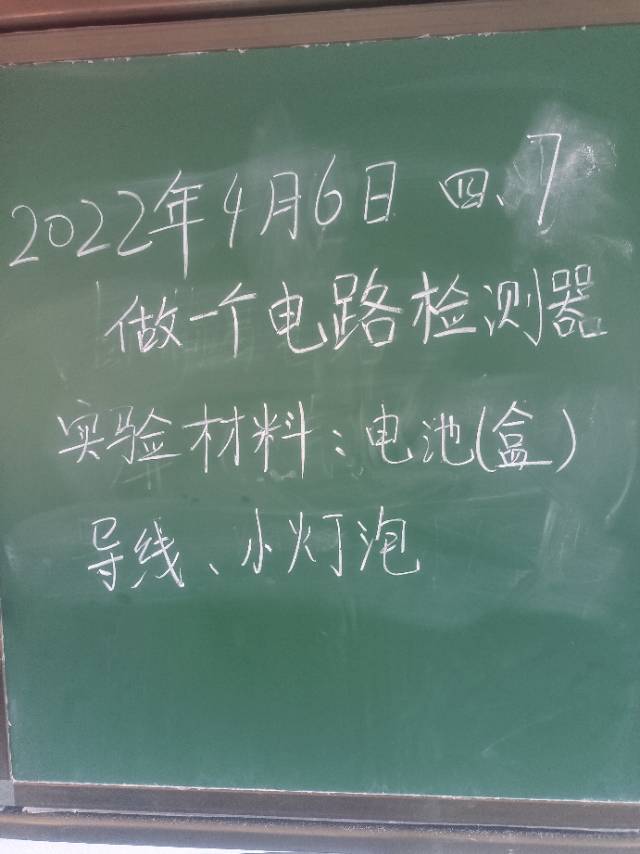 2022年4月6日 四、7
做一个电路检测器
实验材料：电池(盒)
导线、小灯泡